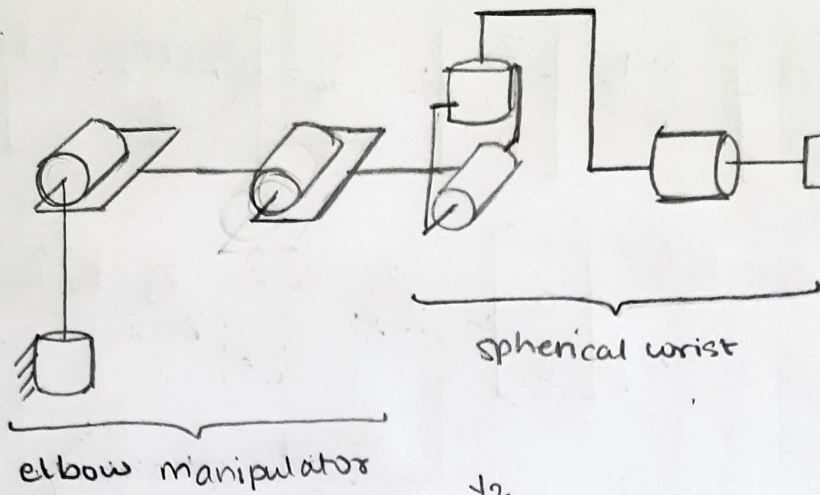 spherical wrist
elbow manipulator